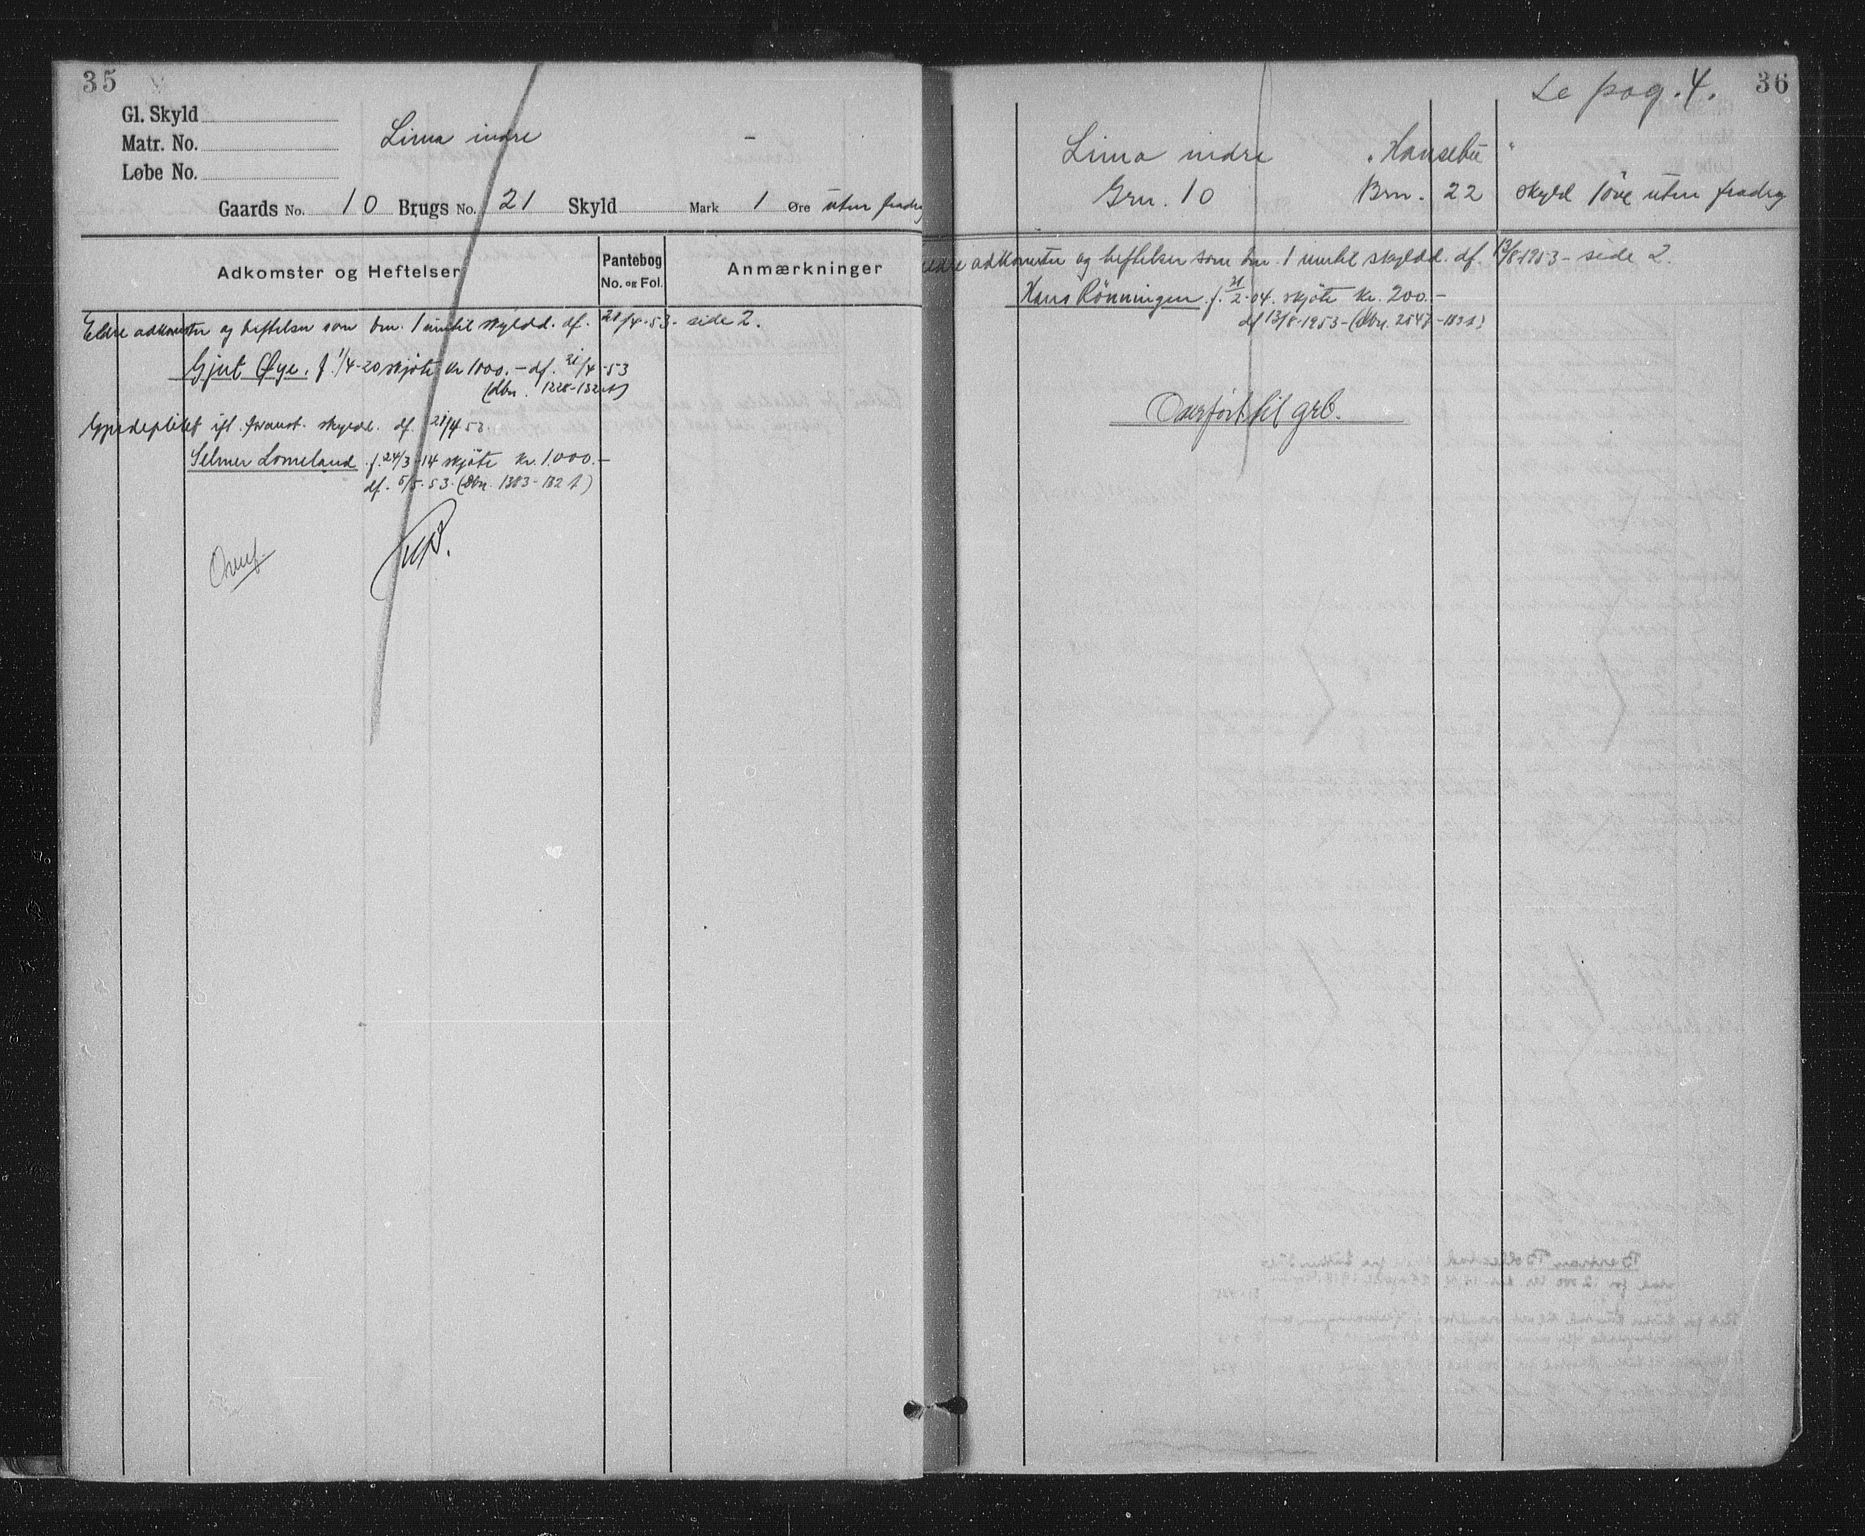 35
Gl. Skyld
Matr. No. Lima indre -
Løbe No.
Gaards No. 10 Brugs No. 21 Skyld Mark 1 Øre uten fradrag
Adkomster og Heftelser
Pantebog
No. og Fol.
Anmærkninger
Eldre adkomster og heftelser som bnr. 1 inntil skyldd. df. 21/4-53- side 2.
Gjut Øye. f 1/4-20 skjøte kr 1000.- df. 21/4-53
(dbn. 1228-132 )
ifl. skyldd. df. 21/4 53.
Selmer Lomeland f. 24/3-14 skjøte kr. 1.000.-
df. 5/5-53 (Dbn. 1383-132 )
Overf.
36
Se pag. 4.
Lima indre "Hansebu"
Grn. 10 Brn. 22 skyld 1 øre uten fradrag
Eldre adkomster og heftelser som bnr. 1 inntil skyldd. df. 13/8-1953- side 2.
Hans Rönningen f. 21/2-04. skjøte kr. 200.-
df 13/8-1953-(dbn. 2547-133 )
Overført til grb.